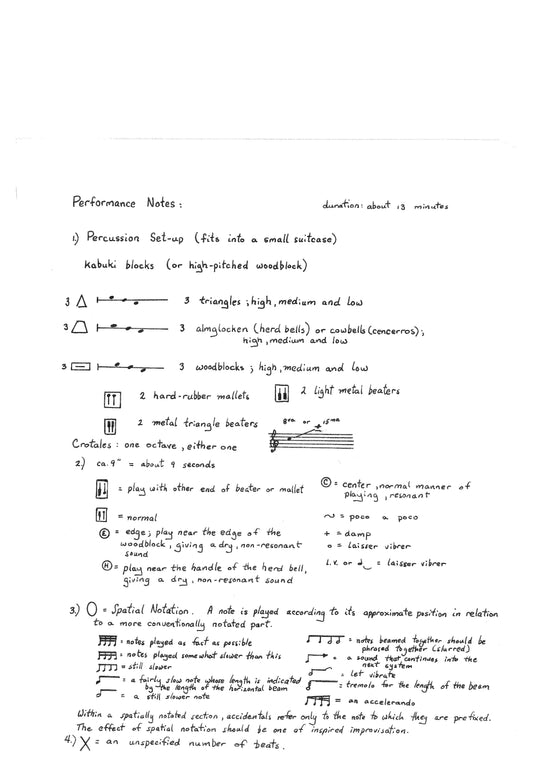 Performance Notes: duration: about 13 minutes
1.) Percussion Set-up (fits into a small suitcase)
Kabuki blocks (or high-pitched woodblock)
3 3 triangles; high, medium and low
3 3 almglocken (herd bells) or cowbells (cencerros);
high, medium and low
3 3 woodblocks; high, medium and low
2 hard-rubber mallets 2 light metal beaters
2 metal triangle beaters 8va or 15ma
Crotales: one octave, either one
2.) ca. 9" = about 9 seconds
= play with other end of beater or mallet
= normal
(E) = edge; play near the edge of the
woodblock, giving a dry, non-resonant
sound
(H) = play near the handle of the herd bell,
giving a dry, non-resonant sound
(C) = center, normal manner of
playing, resonant
~ = poco a poco
+ = damp
o = laisser vibrer
l.v. or = laisser vibrer
3.) = Spatial Notation. A note is played according to its approximate position in relation
to a more conventionally notated part.
= notes played as fast as possible
= notes played somewhat slower than this
= still slower
= a fairly slow note whose length is indicated
by the length of the horizontal beam
= a still slower note
= notes beamed together should be
phrased together (slurred)
= a sound that continues into the
next system
= let vibrate
= tremolo for the length of the beam
= an accelerando
Within a spatially notated section, accidentals refer only to the note to which they are prefixed.
The effect of spatial notation should be one of inspired improvisation.
4.) X = an unspecified number of beats.